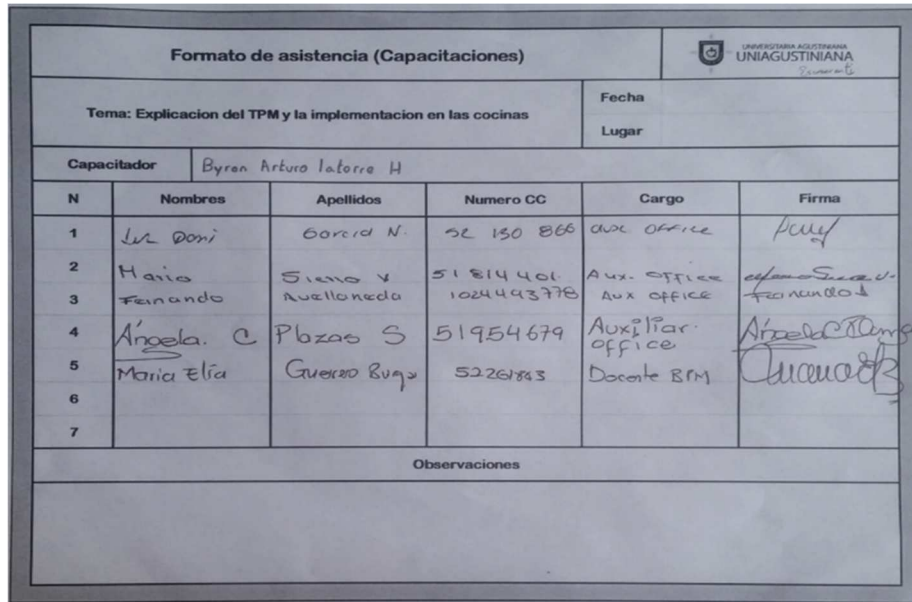 Formato de asistencia (Capacitaciones)
UNIVERSITARIA AGUSTINIANA
UNIAGUSTINIANA
Tema: Explicacion del TPM y la implementacion en las cocinas
Fecha
Lugar
Capacitador Byron Arturo latorre H
N Nombres Apellidos Numero CC Cargo Firma
1 Luz Dari Garcia N. 52 150 866 aux office
2 Maria Sierra V 51 814 401 Aux. office
3 Fernando Avellaneda 1024493778 Aux office Fernando A
4 Ángela. C Plazas S 51954679 Auxiliar. office
5 Maria Elia Guerrero 52261883 Docente BPM
6
7
Observaciones